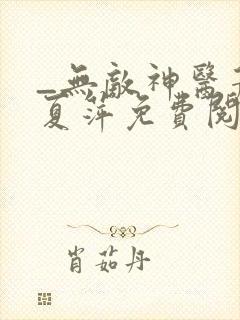 _無敵神醫
夏萍免費閱
肖茹丹